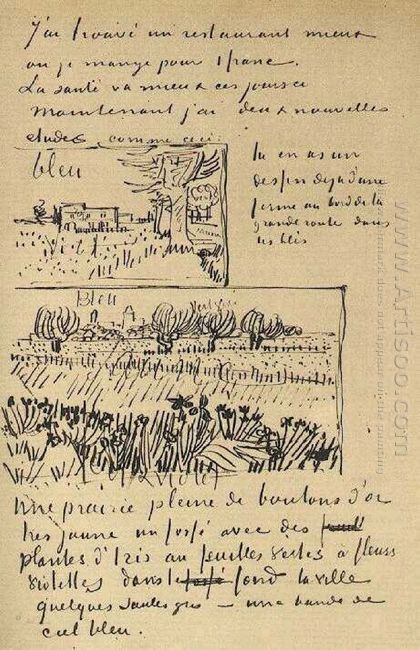 J'ai trouvé un restaurant mieux
ou je mange pour 1 franc.
La santé va mieux ces jours ci
Maintenant j'ai deux nouvelles
etudes comme ceci
bleu
tu en as un
dessin deja d'une
ferme au bord de la
grande route dans
les blés
Bleu
Violet
Une prairie pleine de boutons d'or
tres jaune un fossé avec des
plantes d'Iris au feuilles vertes a fleurs
violettes dans le fossé fond la ville
quelques saules gris — une bande de
ciel bleu.
www.Artisoo.com